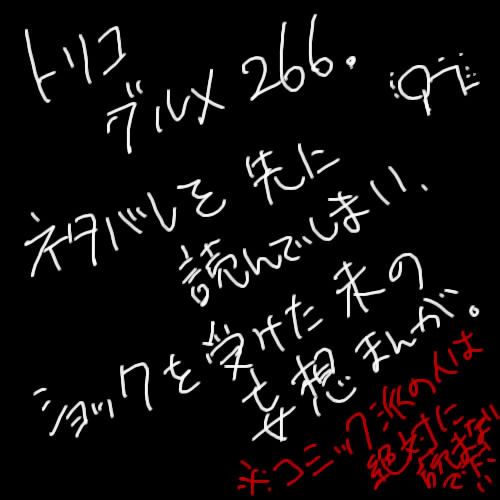 トリコ
グルメ266.
ネタバレを先に
読んでしまい、
ショックを受けた末の
妄想まんが。
※コミック派の人は
絶対に
読まない
で下さい